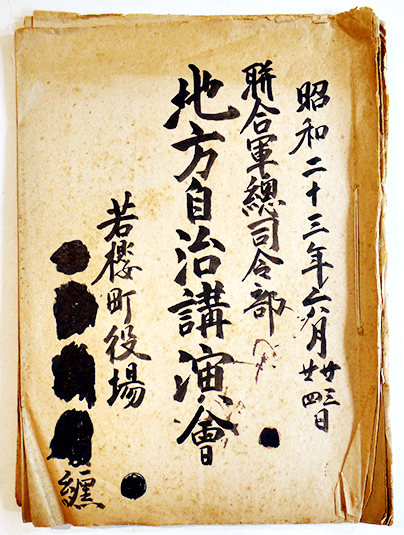 昭和二十三年六月廿三廿四日
聯合軍總司令部
地方自治講演會
若櫻町役場
纏